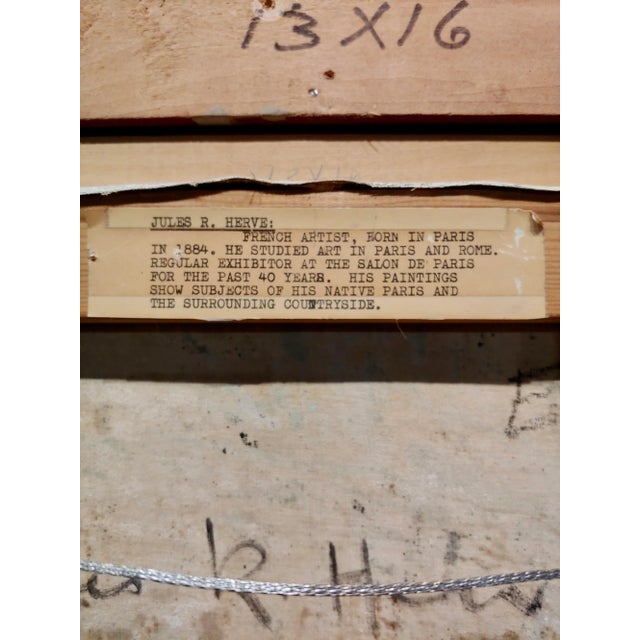 13X16
JULES R. HERVE:
FRENCH ARTIST, BORN IN PARIS
IN 1884. HE STUDIED ART IN PARIS AND ROME.
REGULAR EXHIBITOR AT THE SALON DE PARIS
FOR THE PAST 40 YEARS. HIS PAINTINGS
SHOW SUBJECTS OF HIS NATIVE PARIS AND
THE SURROUNDING COUNTRYSIDE.
R